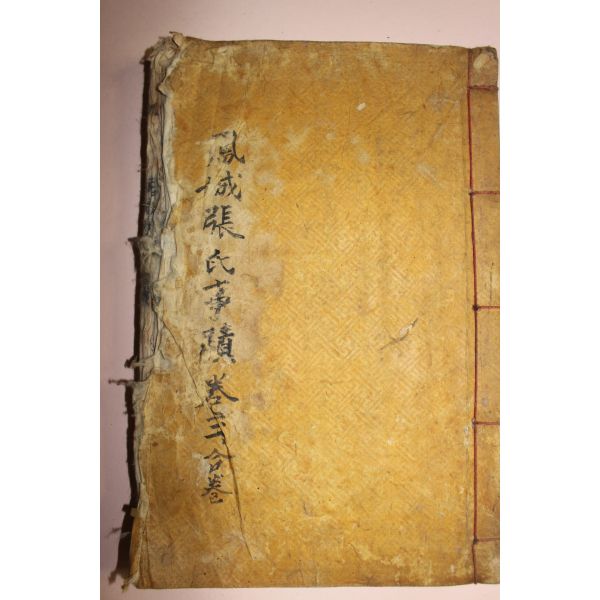 鳳城張氏事蹟卷弍合卷